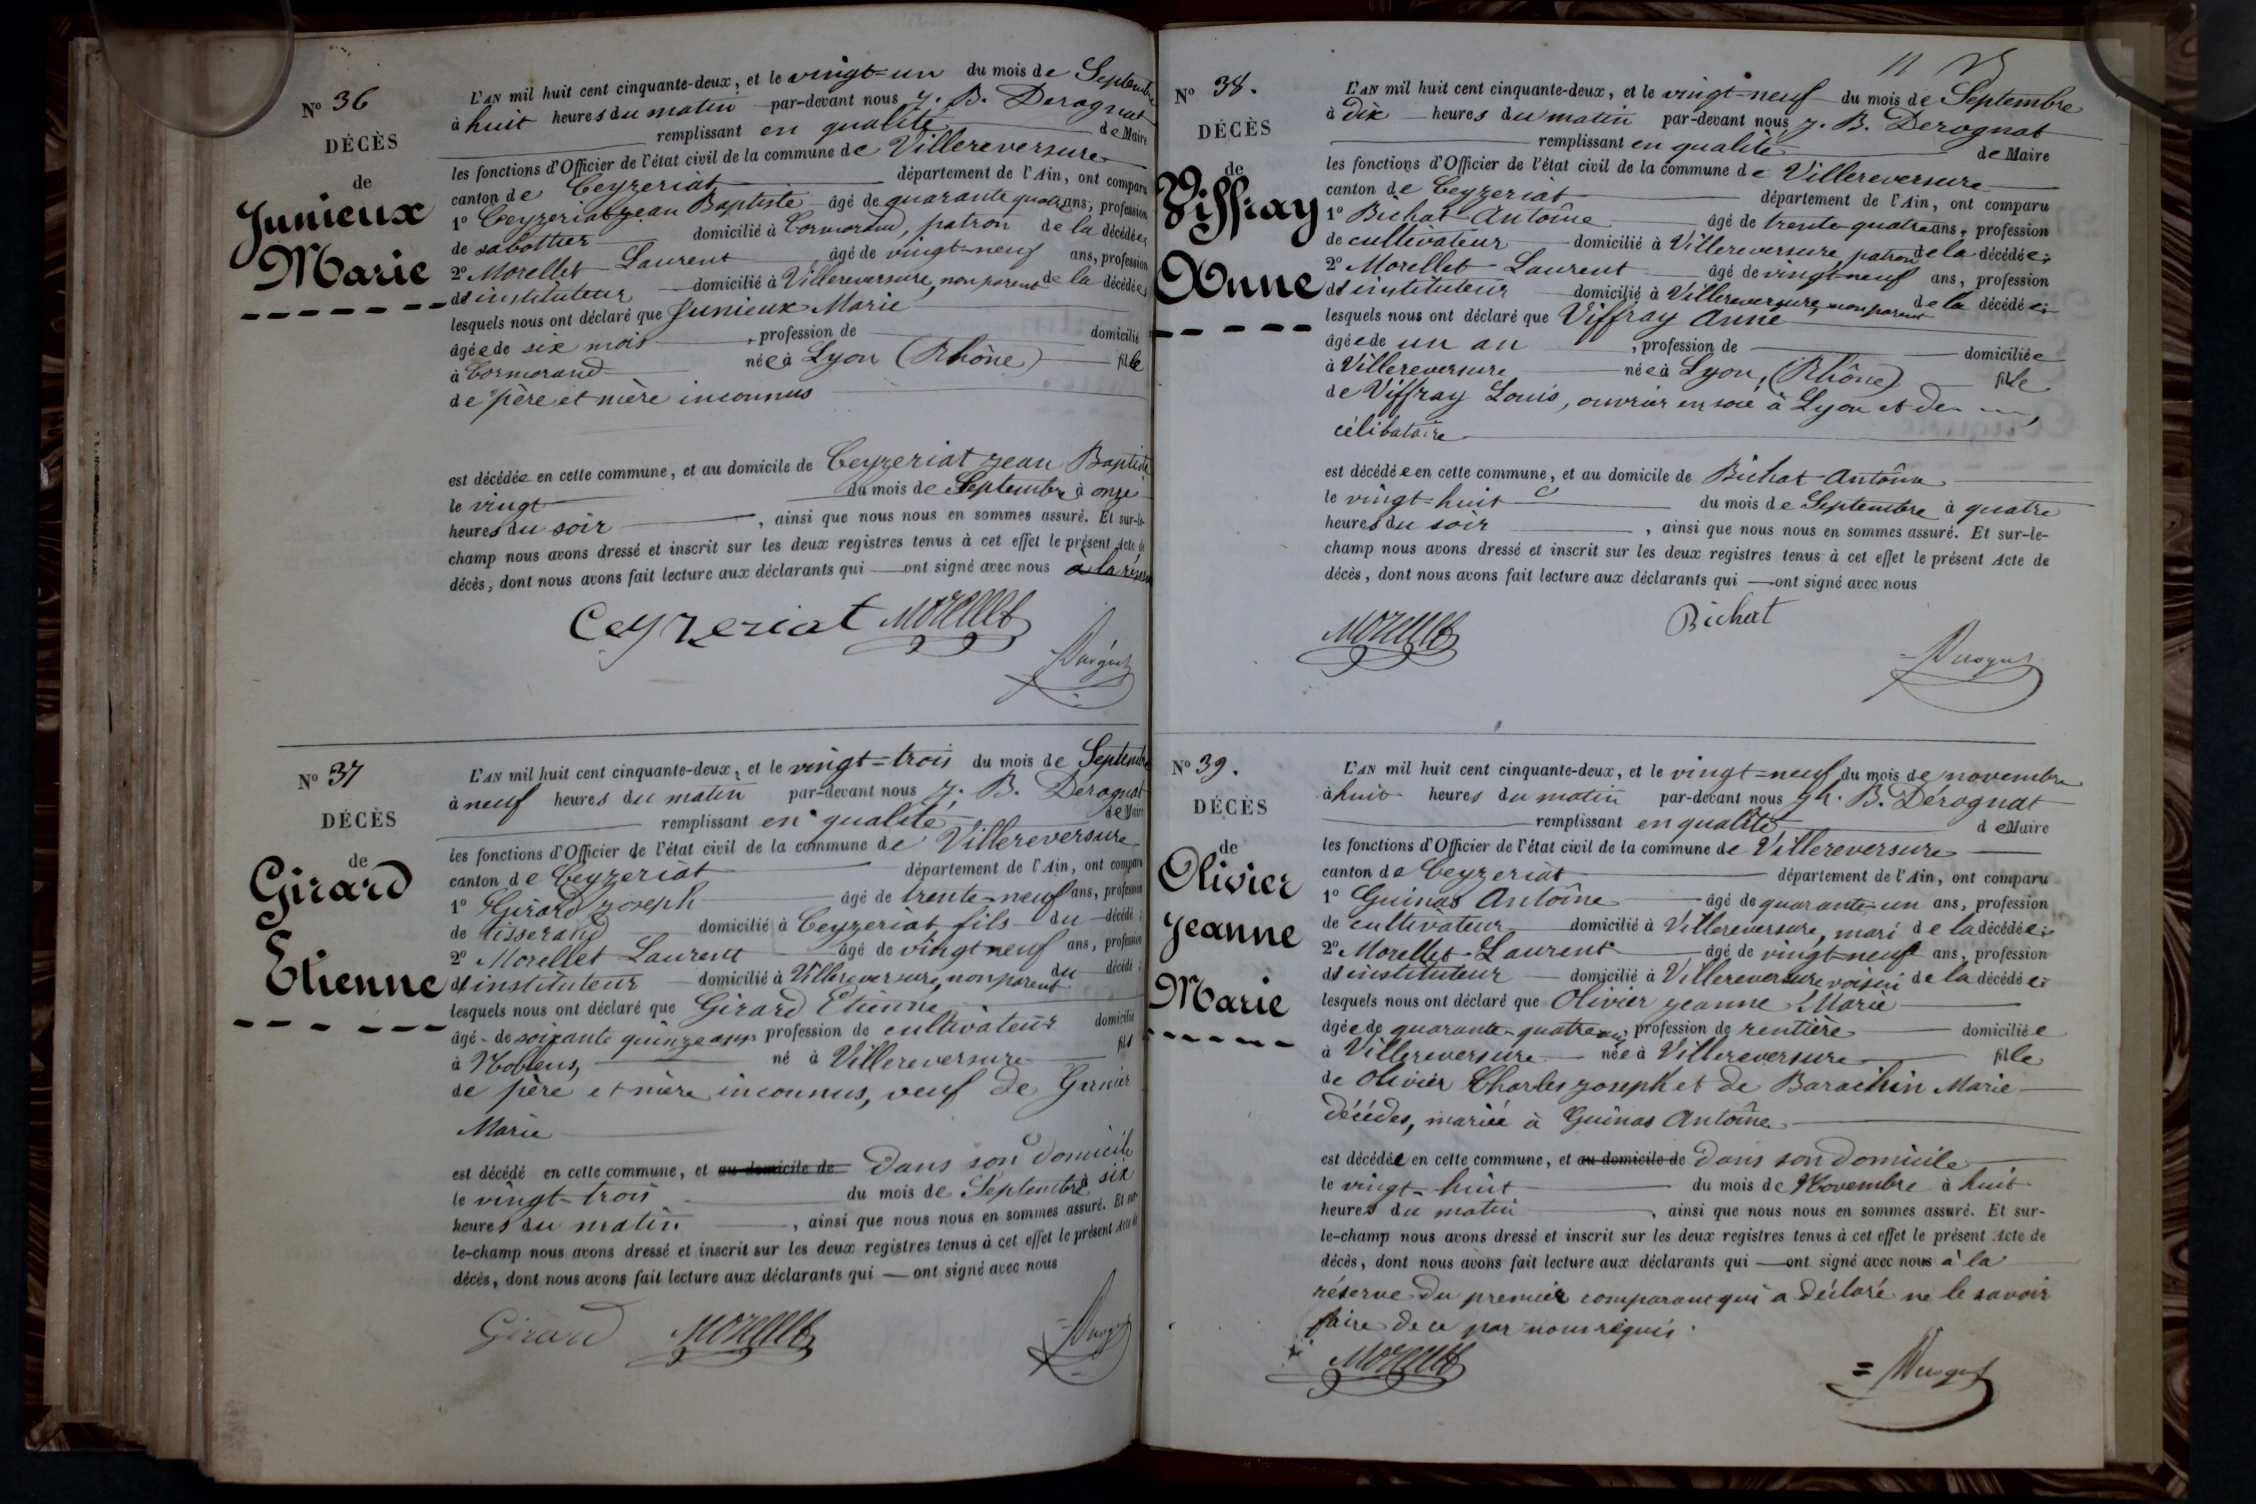 Nº 36
DÉCÈS
de
Junieux
Marie
L'AN mil huit cent cinquante-deux, et le vingt=un du mois de Septembre
à huit heures du matin par-devant nous J. B. Derognat
remplissant en qualité de Maire
les fonctions d'Officier de l'état civil de la commune de Villereversure
canton de Ceyzeriat département de l'Ain, ont comparu
1º Ceyzeriat Jean Baptiste âgé de quarante quatre ans, profession
de sabottier domicilié à Cormorand, patron de la décédée;
2º Morellet Laurent âgé de vingt-neuf ans, profession
d'instituteur domicilié à Villereversure, non parent de la décédée;
lesquels nous ont déclaré que Junieux Marie
âgée de six mois, profession de domicilié
à Cormorand née à Lyon (Rhône) fille
de père et mère inconnus
est décédée en cette commune, et au domicile de Ceyzeriat Jean Baptiste
le vingt du mois de Septembre à onze
heures du soir, ainsi que nous nous en sommes assuré. Et sur-le-
champ nous avons dressé et inscrit sur les deux registres tenus à cet effet le présent Acte de
décès, dont nous avons fait lecture aux déclarants qui ont signé avec nous
Ceyzeriat Morellet
Derognat
Nº 37
DÉCÈS
de
Girard
Etienne
L'AN mil huit cent cinquante-deux, et le vingt=trois du mois de Septembre
à neuf heures du matin par-devant nous J. B. Dérognat
remplissant en qualité de Maire
les fonctions d'Officier de l'état civil de la commune de Villereversure
canton de Ceyzeriat département de l'Ain, ont comparu
1º Girard Joseph âgé de trente=neuf ans, profession
de tisserand domicilié à Ceyzeriat fils du décédé;
2º Morellet Laurent âgé de vingt neuf ans, profession
d'instituteur domicilié à Villereversure, non parent du décédé;
lesquels nous ont déclaré que Girard Etienne
âgé de soixante quinze ans, profession de cultivateur domicilié
à Noblens, né à Villereversure fils
de père et mère inconnus, veuf de
Marie
est décédé en cette commune, et au domicile de dans son domicile
le vingt=trois du mois de Septembre à six
heures du matin, ainsi que nous nous en sommes assuré. Et sur-
le-champ nous avons dressé et inscrit sur les deux registres tenus à cet effet le présent Acte de
décès, dont nous avons fait lecture aux déclarants qui ont signé avec nous
Girard Morellet
Derognat
11
Nº 38.
DÉCÈS
de
Viffray
Anne
L'AN mil huit cent cinquante-deux, et le vingt=neuf du mois de Septembre
à dix heures du matin par-devant nous J. B. Derognat
remplissant en qualité de Maire
les fonctions d'Officier de l'état civil de la commune de Villereversure
canton de Ceyzeriat département de l'Ain, ont comparu
1º Bichat Antoine âgé de trente quatre ans, profession
de cultivateur domicilié à Villereversure, patron de la décédée;
2º Morellet Laurent âgé de vingt neuf ans, profession
d'instituteur domicilié à Villereversure, non parent de la décédée;
lesquels nous ont déclaré que Viffray Anne
âgée de un an, profession de domiciliée
à Villereversure née à Lyon, (Rhône) fille
de Viffray Louis, ouvrier en soie à Lyon et de
célibataire
est décédée en cette commune, et au domicile de Bichat Antoine
le vingt=huit du mois de Septembre à quatre
heures du soir, ainsi que nous nous en sommes assuré. Et sur-le-
champ nous avons dressé et inscrit sur les deux registres tenus à cet effet le présent Acte de
décès, dont nous avons fait lecture aux déclarants qui ont signé avec nous
Morellet Bichat
Derognat
Nº 39.
DÉCÈS
de
Olivier
Jeanne
Marie
L'AN mil huit cent cinquante-deux, et le vingt=neuf du mois de novembre
à huit heures du matin par-devant nous B. Dérognat
remplissant en qualité de Maire
les fonctions d'Officier de l'état civil de la commune de Villereversure
canton de Ceyzeriat département de l'Ain, ont comparu
1º Guinas Antoine âgé de quarante-un ans, profession
de cultivateur domicilié à Villereversure, mari de la décédée;
2º Morellet Laurent âgé de vingt neuf ans, profession
d'instituteur domicilié à Villereversure voisin de la décédée;
lesquels nous ont déclaré que Olivier Jeanne Marie
âgée de quarante-quatre ans, profession de rentière domiciliée
à Villereversure née à Villereversure fille
de Olivier Charles Joseph et de Barachin Marie
décédés, mariée à Guinas Antoine
est décédée en cette commune, et au domicile de dans son domicile
le vingt=huit du mois de Novembre à huit
heures du matin, ainsi que nous nous en sommes assuré. Et sur-
le-champ nous avons dressé et inscrit sur les deux registres tenus à cet effet le présent Acte de
décès, dont nous avons fait lecture aux déclarants qui ont signé avec nous à la
réserve du premier comparant qui a déclaré ne le savoir
faire de ce par nous réquis.
Morellet
Derognat